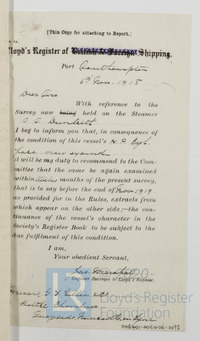 (This Copy for attaching to Report.)
Lloyd's Register of British & Foreign Shipping.
Port Southampton
6th Nov. 1918
Dear Sirs
With reference to the
Survey now being held on the Steamer
I beg to inform you that, in consequence of
the condition of this vessel's H P Cyl.
it will be my duty to recommend to the Com-
mittee that the same be again examined
within months of the present survey,
that is to say before the end of Nov. 1919
as provided for in the Rules, extracts from
which appear on the other side;—the con-
tinuance of the vessel's character in the
Society's Register Book to be subject to the
due fulfilment of this condition.
I am,
Your obedient Servant,
Engineer Surveyor to Lloyd's Register.
Lloyd's Register
Foundation